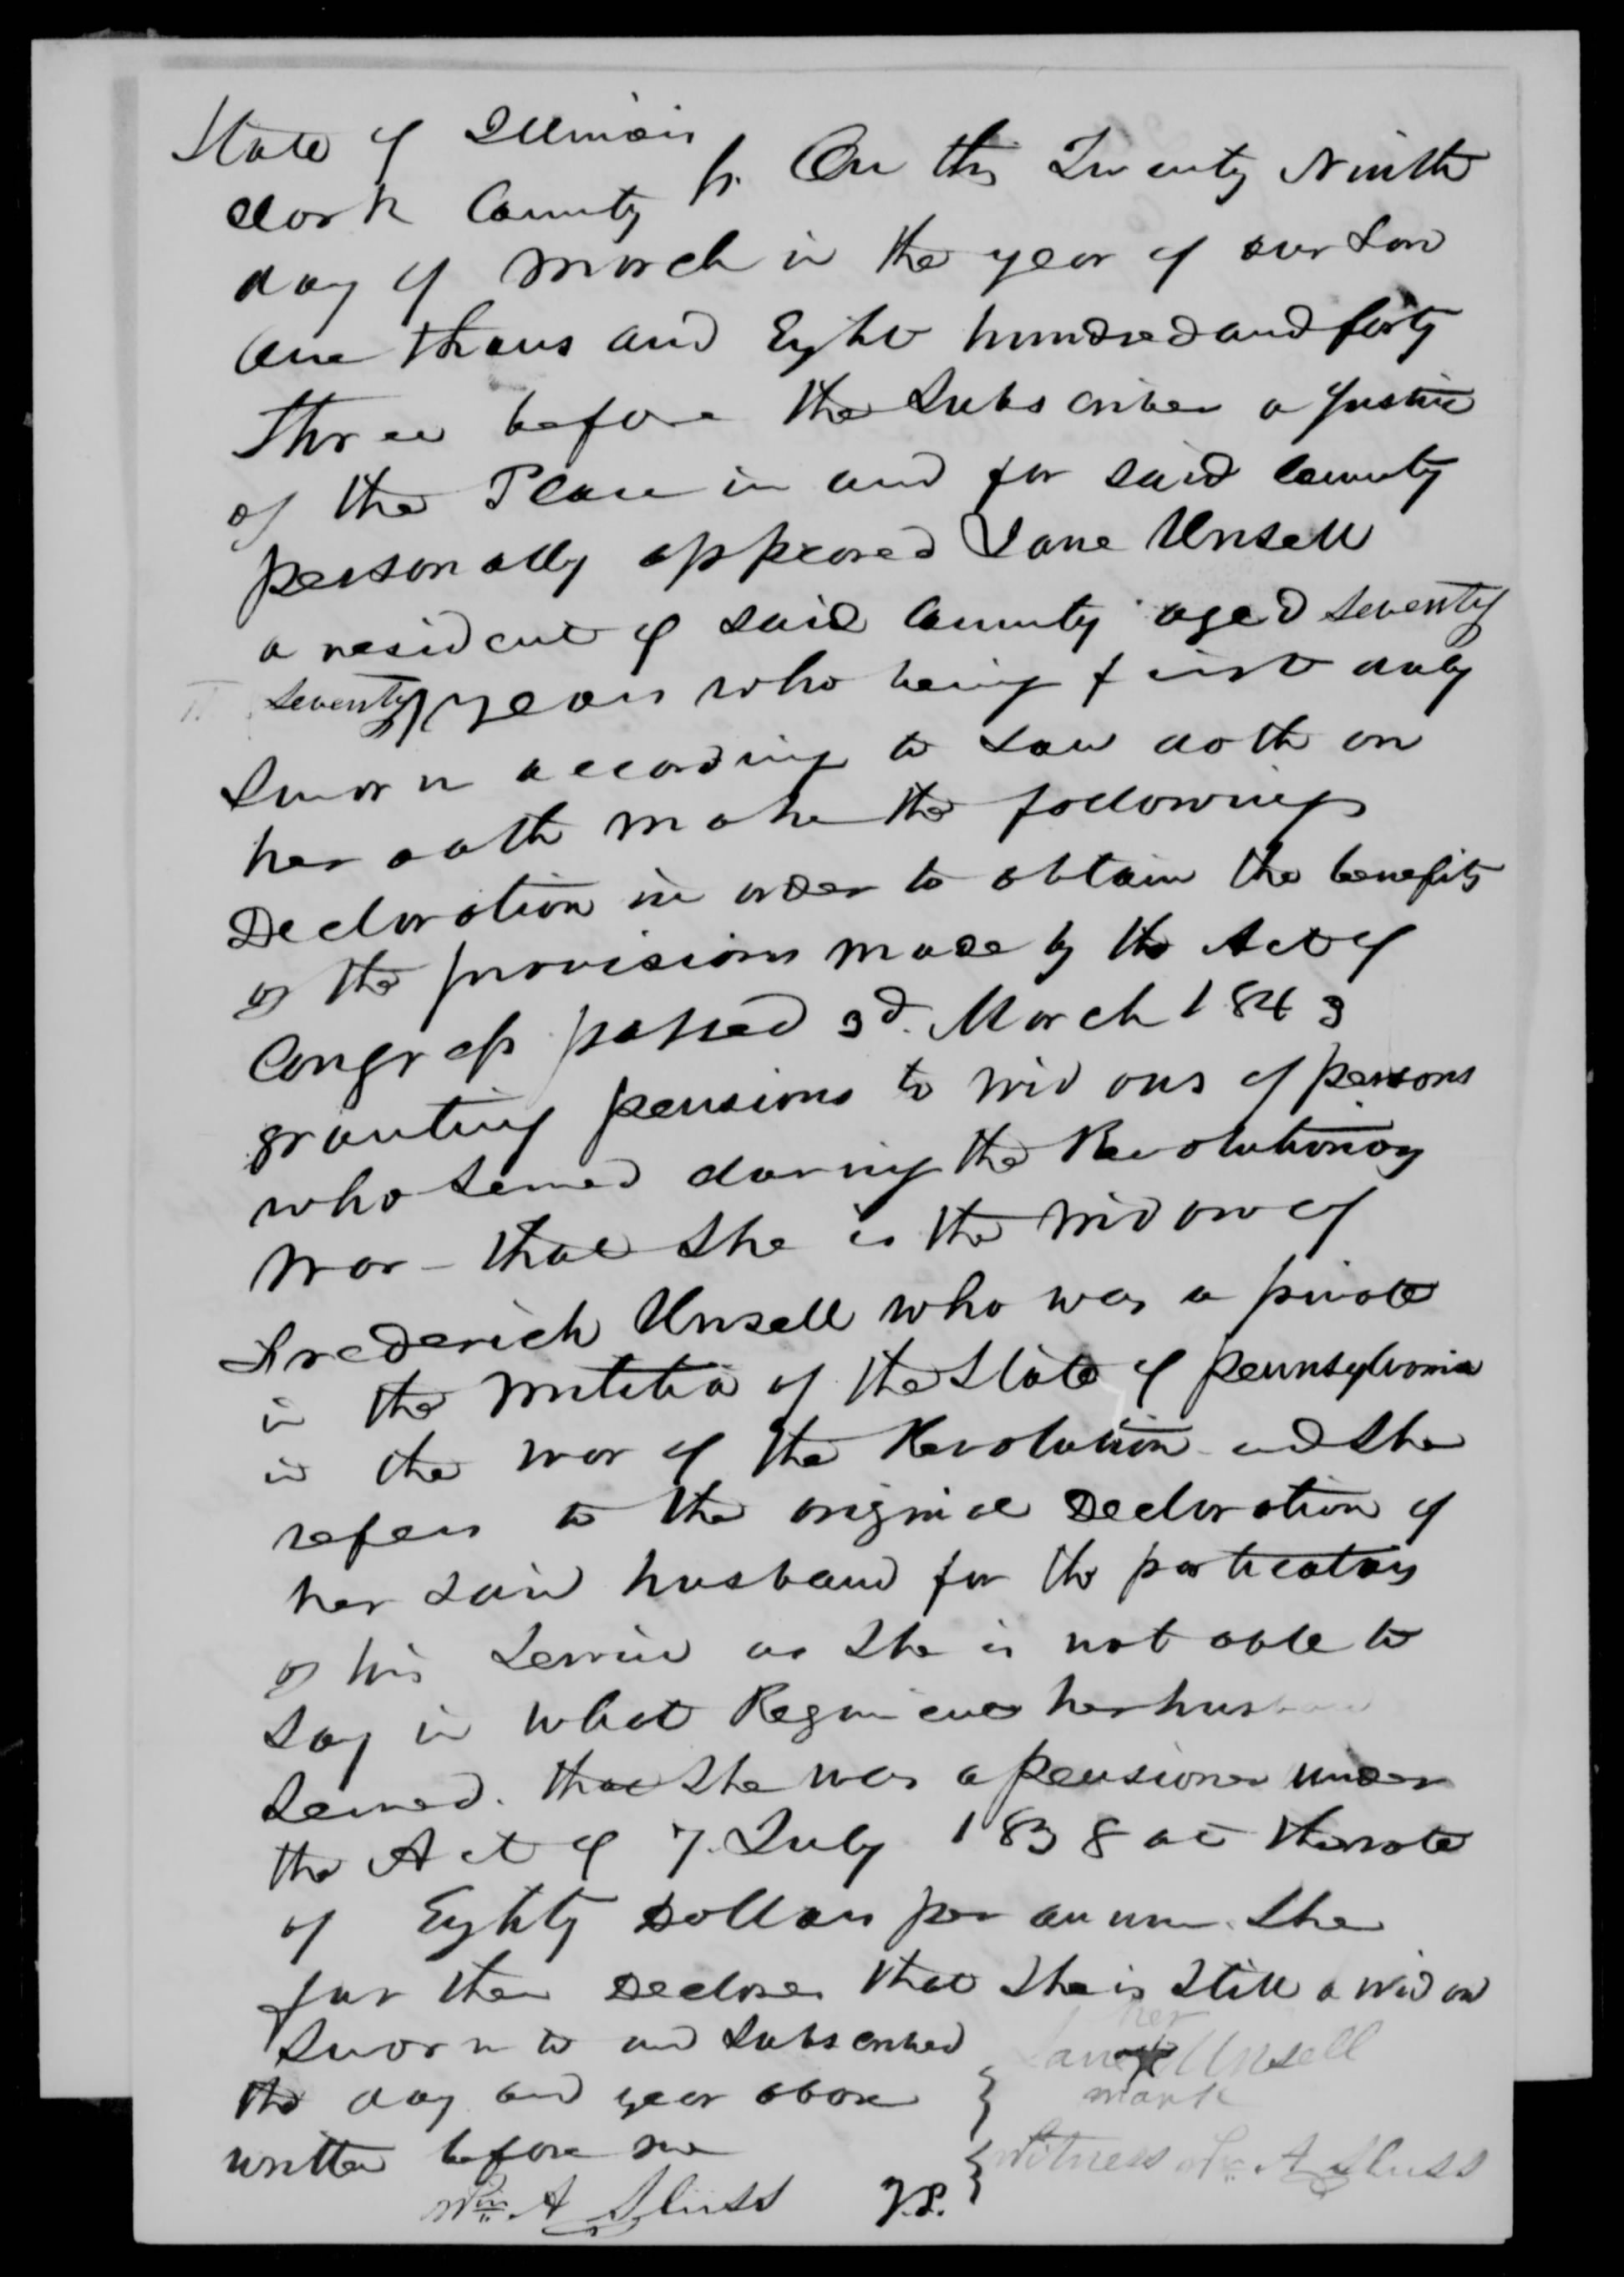 State of Illinois
Clark County ss. On this Twenty Ninth
day of March in the year of our Lord
One thousand Eight hundred and forty
three before the Subscriber a Justice
of the Peace in and for said County
personally appeared Jane Unsell
a resident of said County aged seventy
seventy years who being first duly
Sworn according to Law doth on
her oath make the following
Declaration in order to obtain the benefits
of the provisions made by the Act of
Congress passed 3d. March 1843
granting pensions to widows of persons
who served during the Revolutionary
War - that she is the widow of
Frederich Unsell who was a private
in the Militia of the State of Pennsylvania
in the war of the Revolution and she
refers to the original Declaration of
her said husband for the particulars
of his Service as she is not able to
say in what Regiment her husband
served. that she was a pensioner under
the Act of 7. July 1838 at the rate
of Eighty Dollars per annum. she
further Declares that she is still a widow
Sworn to and Subscribed
the day and year above
written before me
Wm. A Sluss J.P.
her
Jane Unsell
mark
Witness Wm. A Sluss